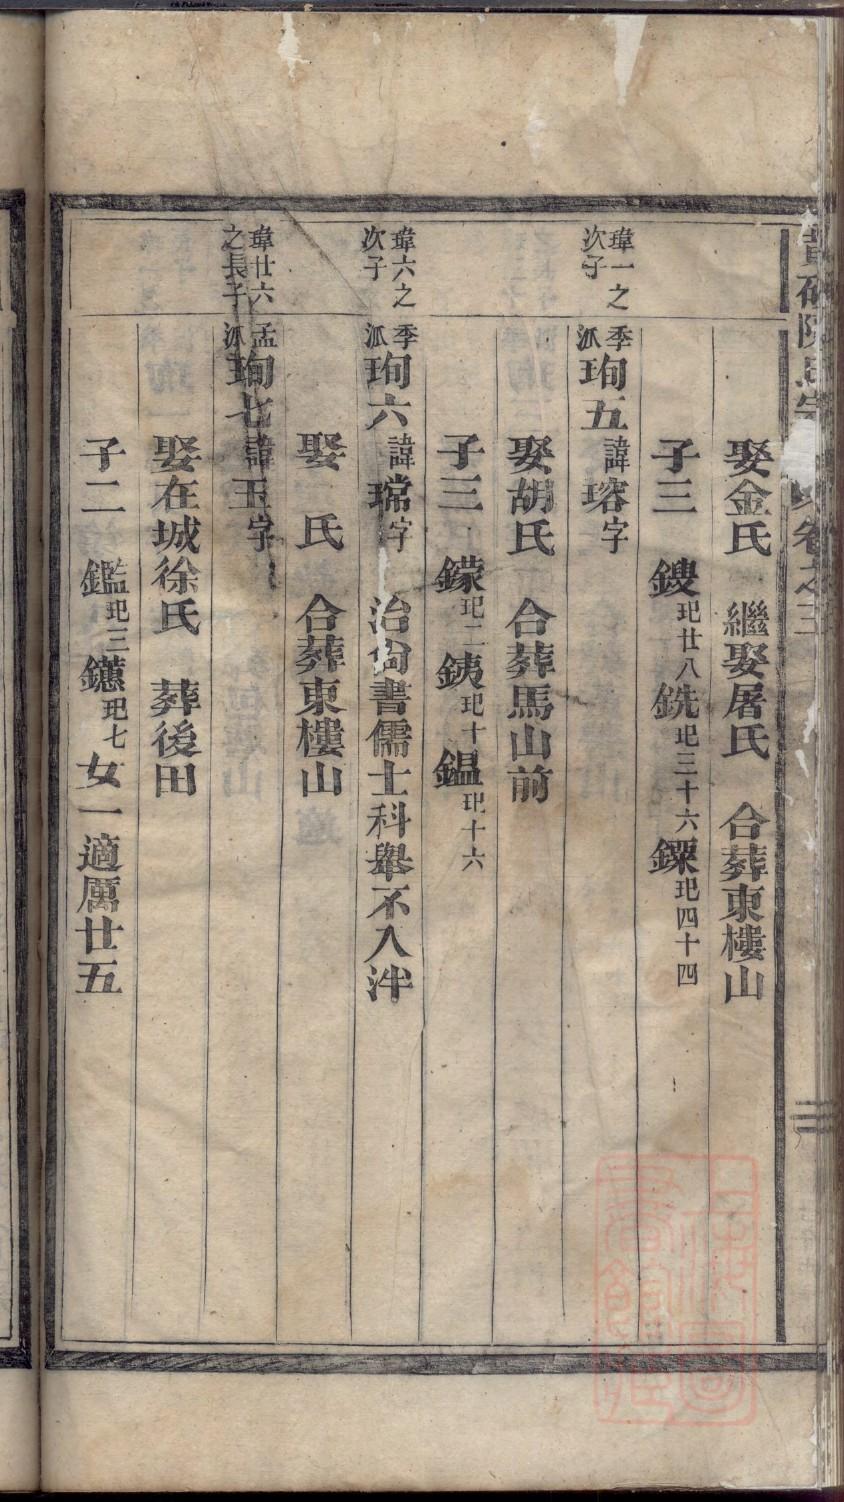 娶金氏 繼娶屠氏 合葬東樓山
子三 鎪玘廿八 銑玘三十六 鏁玘四十四
瑋一之次子
季派 珣五 諱瑢字
娶胡氏 合葬馬山前
子三 鐌玘二 銕玘十 鎾玘十六
瑋六之次子
季派 珣六 諱瑺字 治尙書儒士科舉不入泮
娶 氏 合葬東樓山
瑋廿六之長子
孟派 珣七 諱玉字
娶在城徐氏 葬後田
子二 鑑玘三 鐩玘七 女一適厲廿五